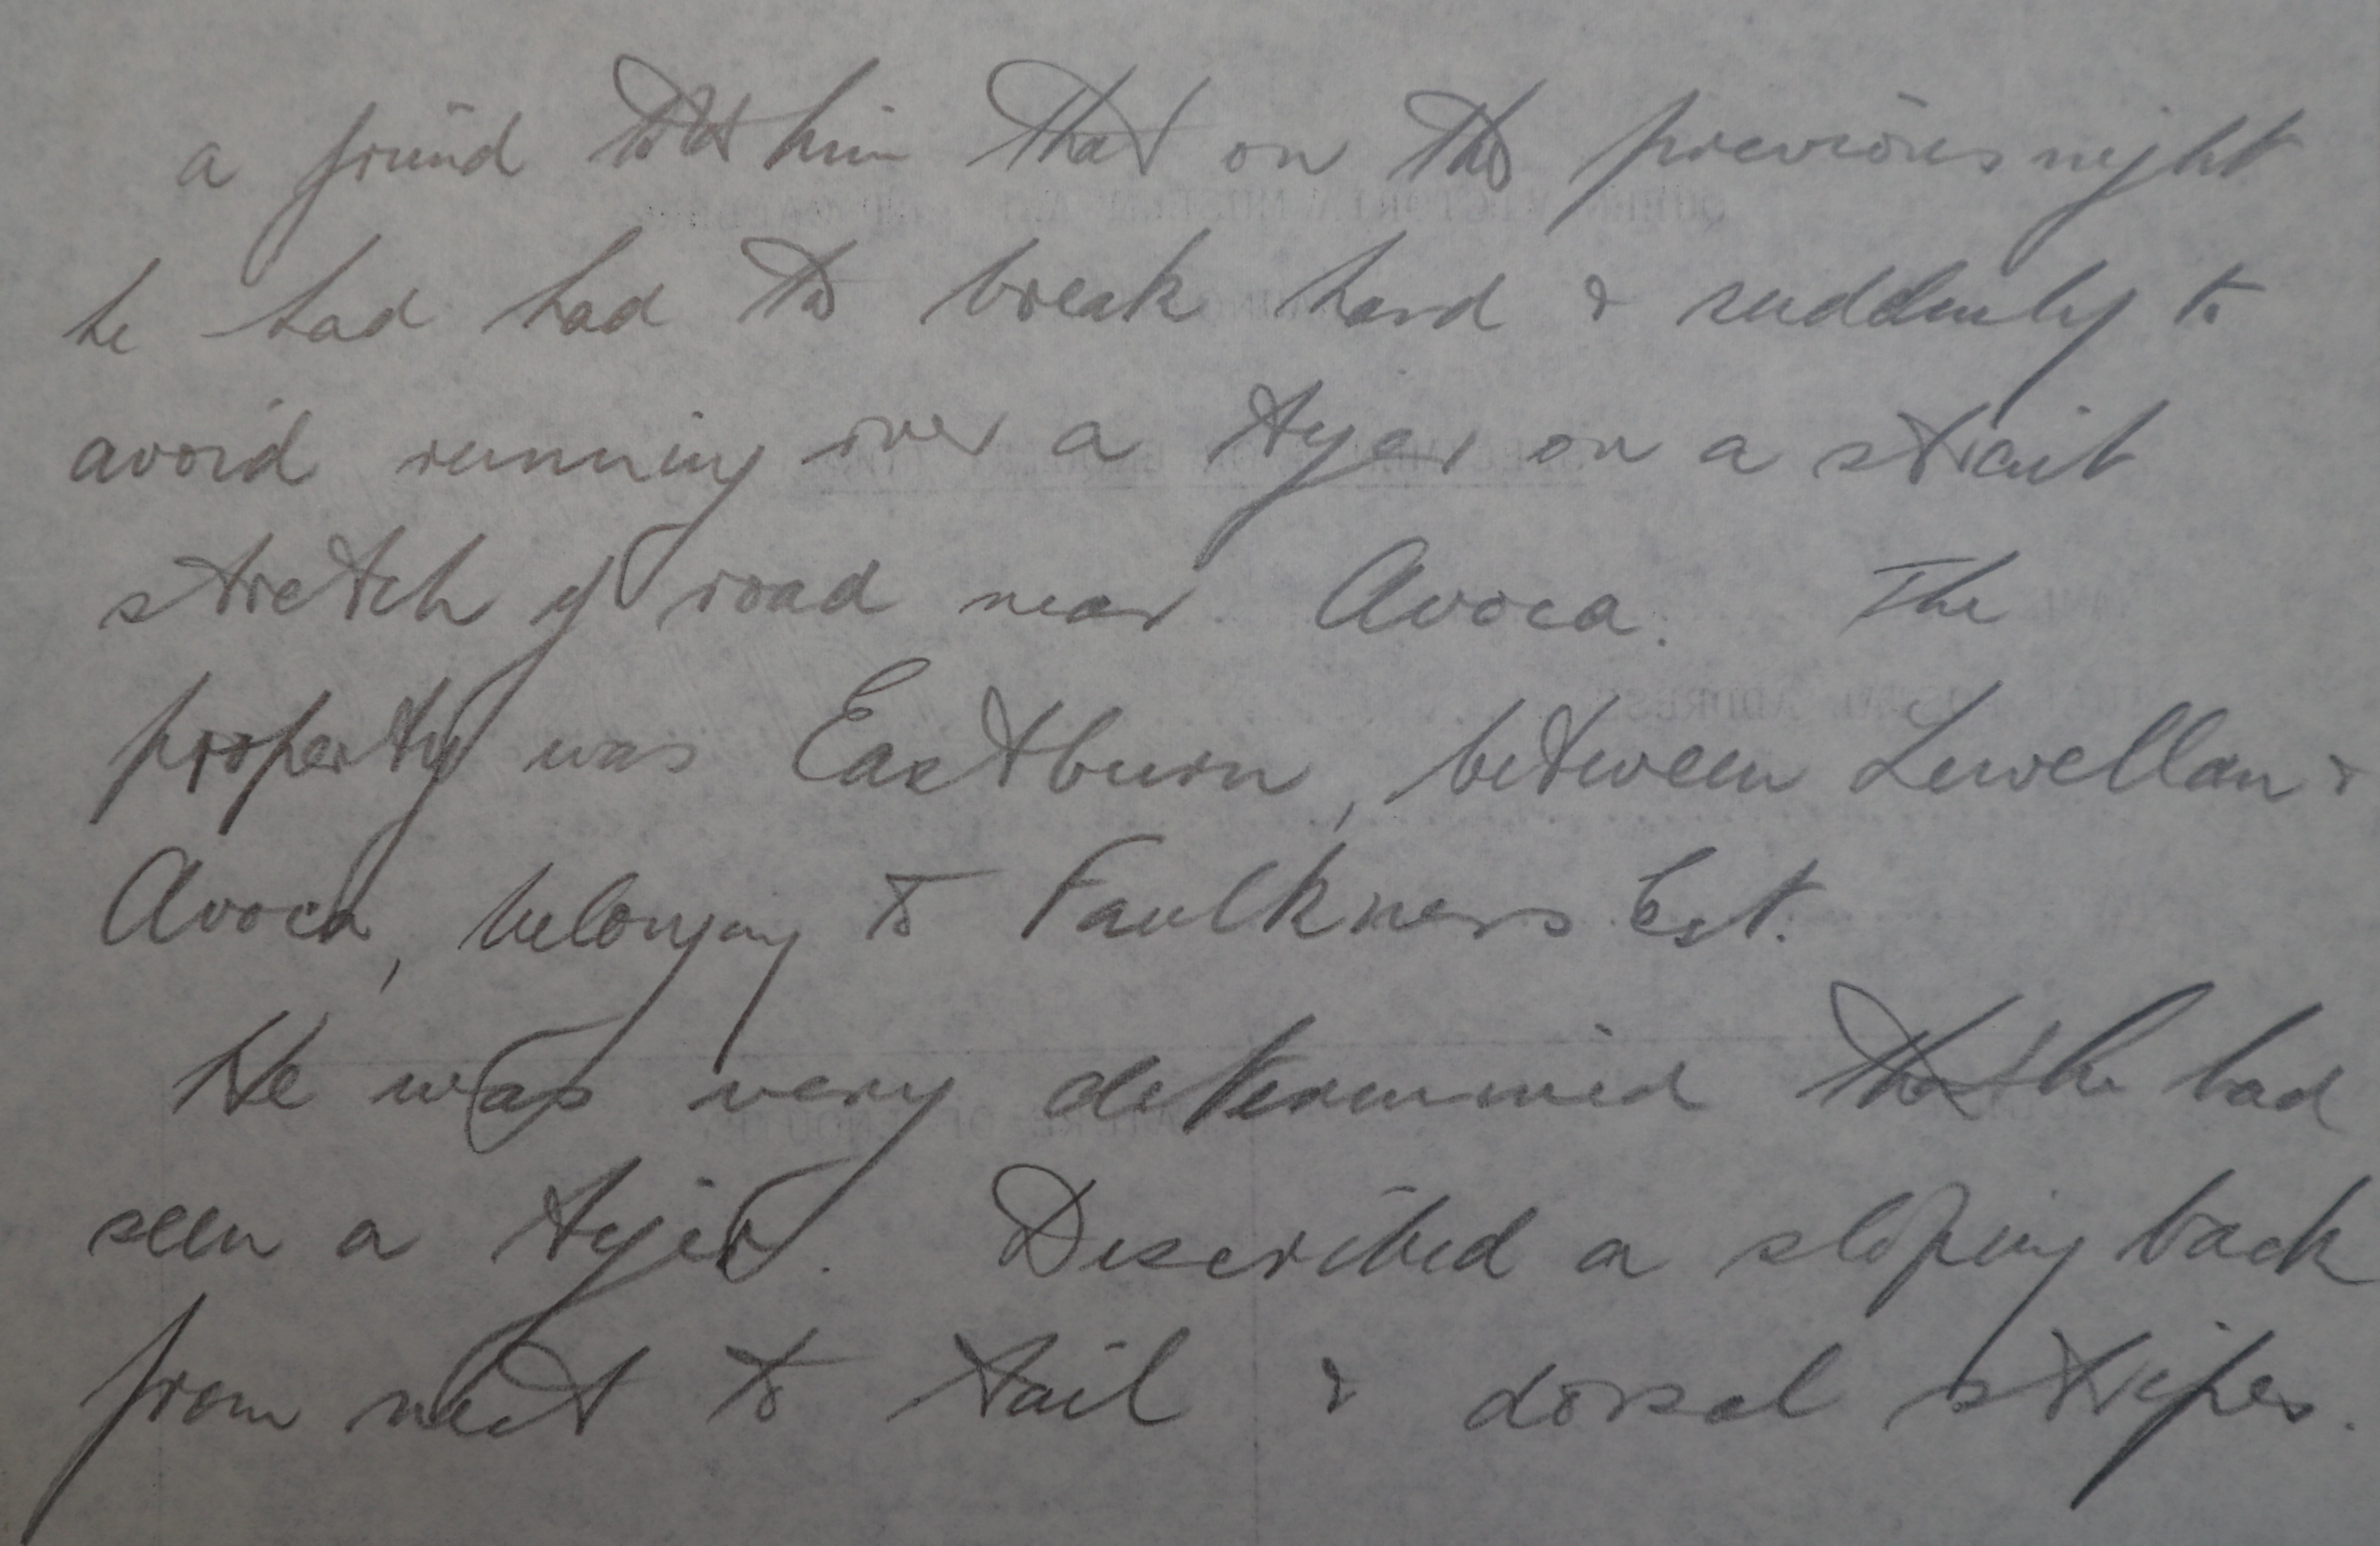 a friend told him that on the previous night
he had had to break hard & suddenly to
avoid running over a tyger on a strait
stretch of road near Avoca. The
property was Eastburn, between Lewellan &
Avoca, belonging to Faulkners Est.
He was very determined that he had
seen a tyger. Described a sloping back
from to tail & dorsal stripes.